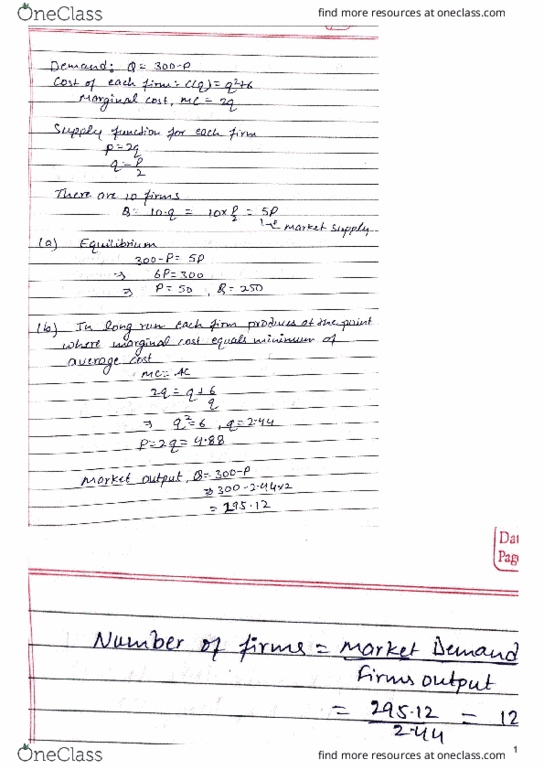 OneClass
find more resources at oneclass.com
Demand: Q = 300-P
Cost of each firm: C(q) = q²+6
Marginal cost, MC = 2q
Supply function for each firm
P = 2q
q = P/2
There are 10 firms
Q = 10·q = 10×P/2 = 5P
market supply
(a) Equilibrium
300-P = 5P
⇒ 6P = 300
⇒ P = 50, Q = 250
(b) In long run each firm produces at the point
where marginal cost equals minimum of
average cost
MC = AC
2q = q + 6/q
⇒ q² = 6, q = 2.44
P = 2q = 4.88
Market output, Q = 300-P
⇒ 300 - 2.44×2
= 295.12
Dat
Pag
Number of firms = market Demand
Firms output
= 295.12 / 2.44 = 12
1
OneClass
find more resources at oneclass.com